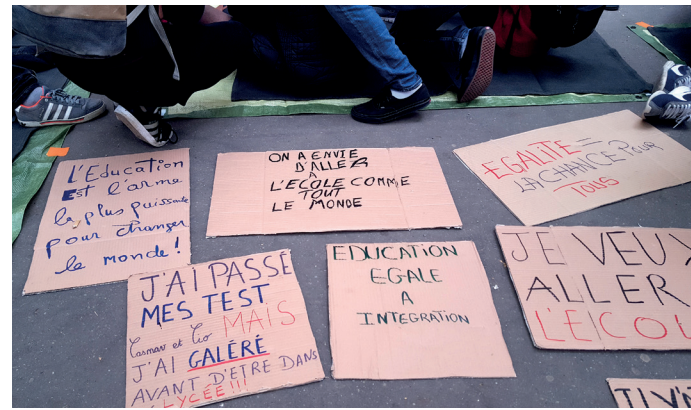 L'Education
Est l'arme
la plus puissante
pour changer
le monde!
ON A ENVIE
D'ALLER
A
L'ECOLE COMME
TOUT
LE MONDE
EGALITE =
LA CHANCE POUR
TOUS
J'AI PASSÉ
MES TEST
Casnav et Cio MAIS
J'AI GALÉRÉ
AVANT D'ETRE DANS
LYCÉE!!!
EDUCATION
EGALE
A
INTEGRATION
JE VEUX
ALLER